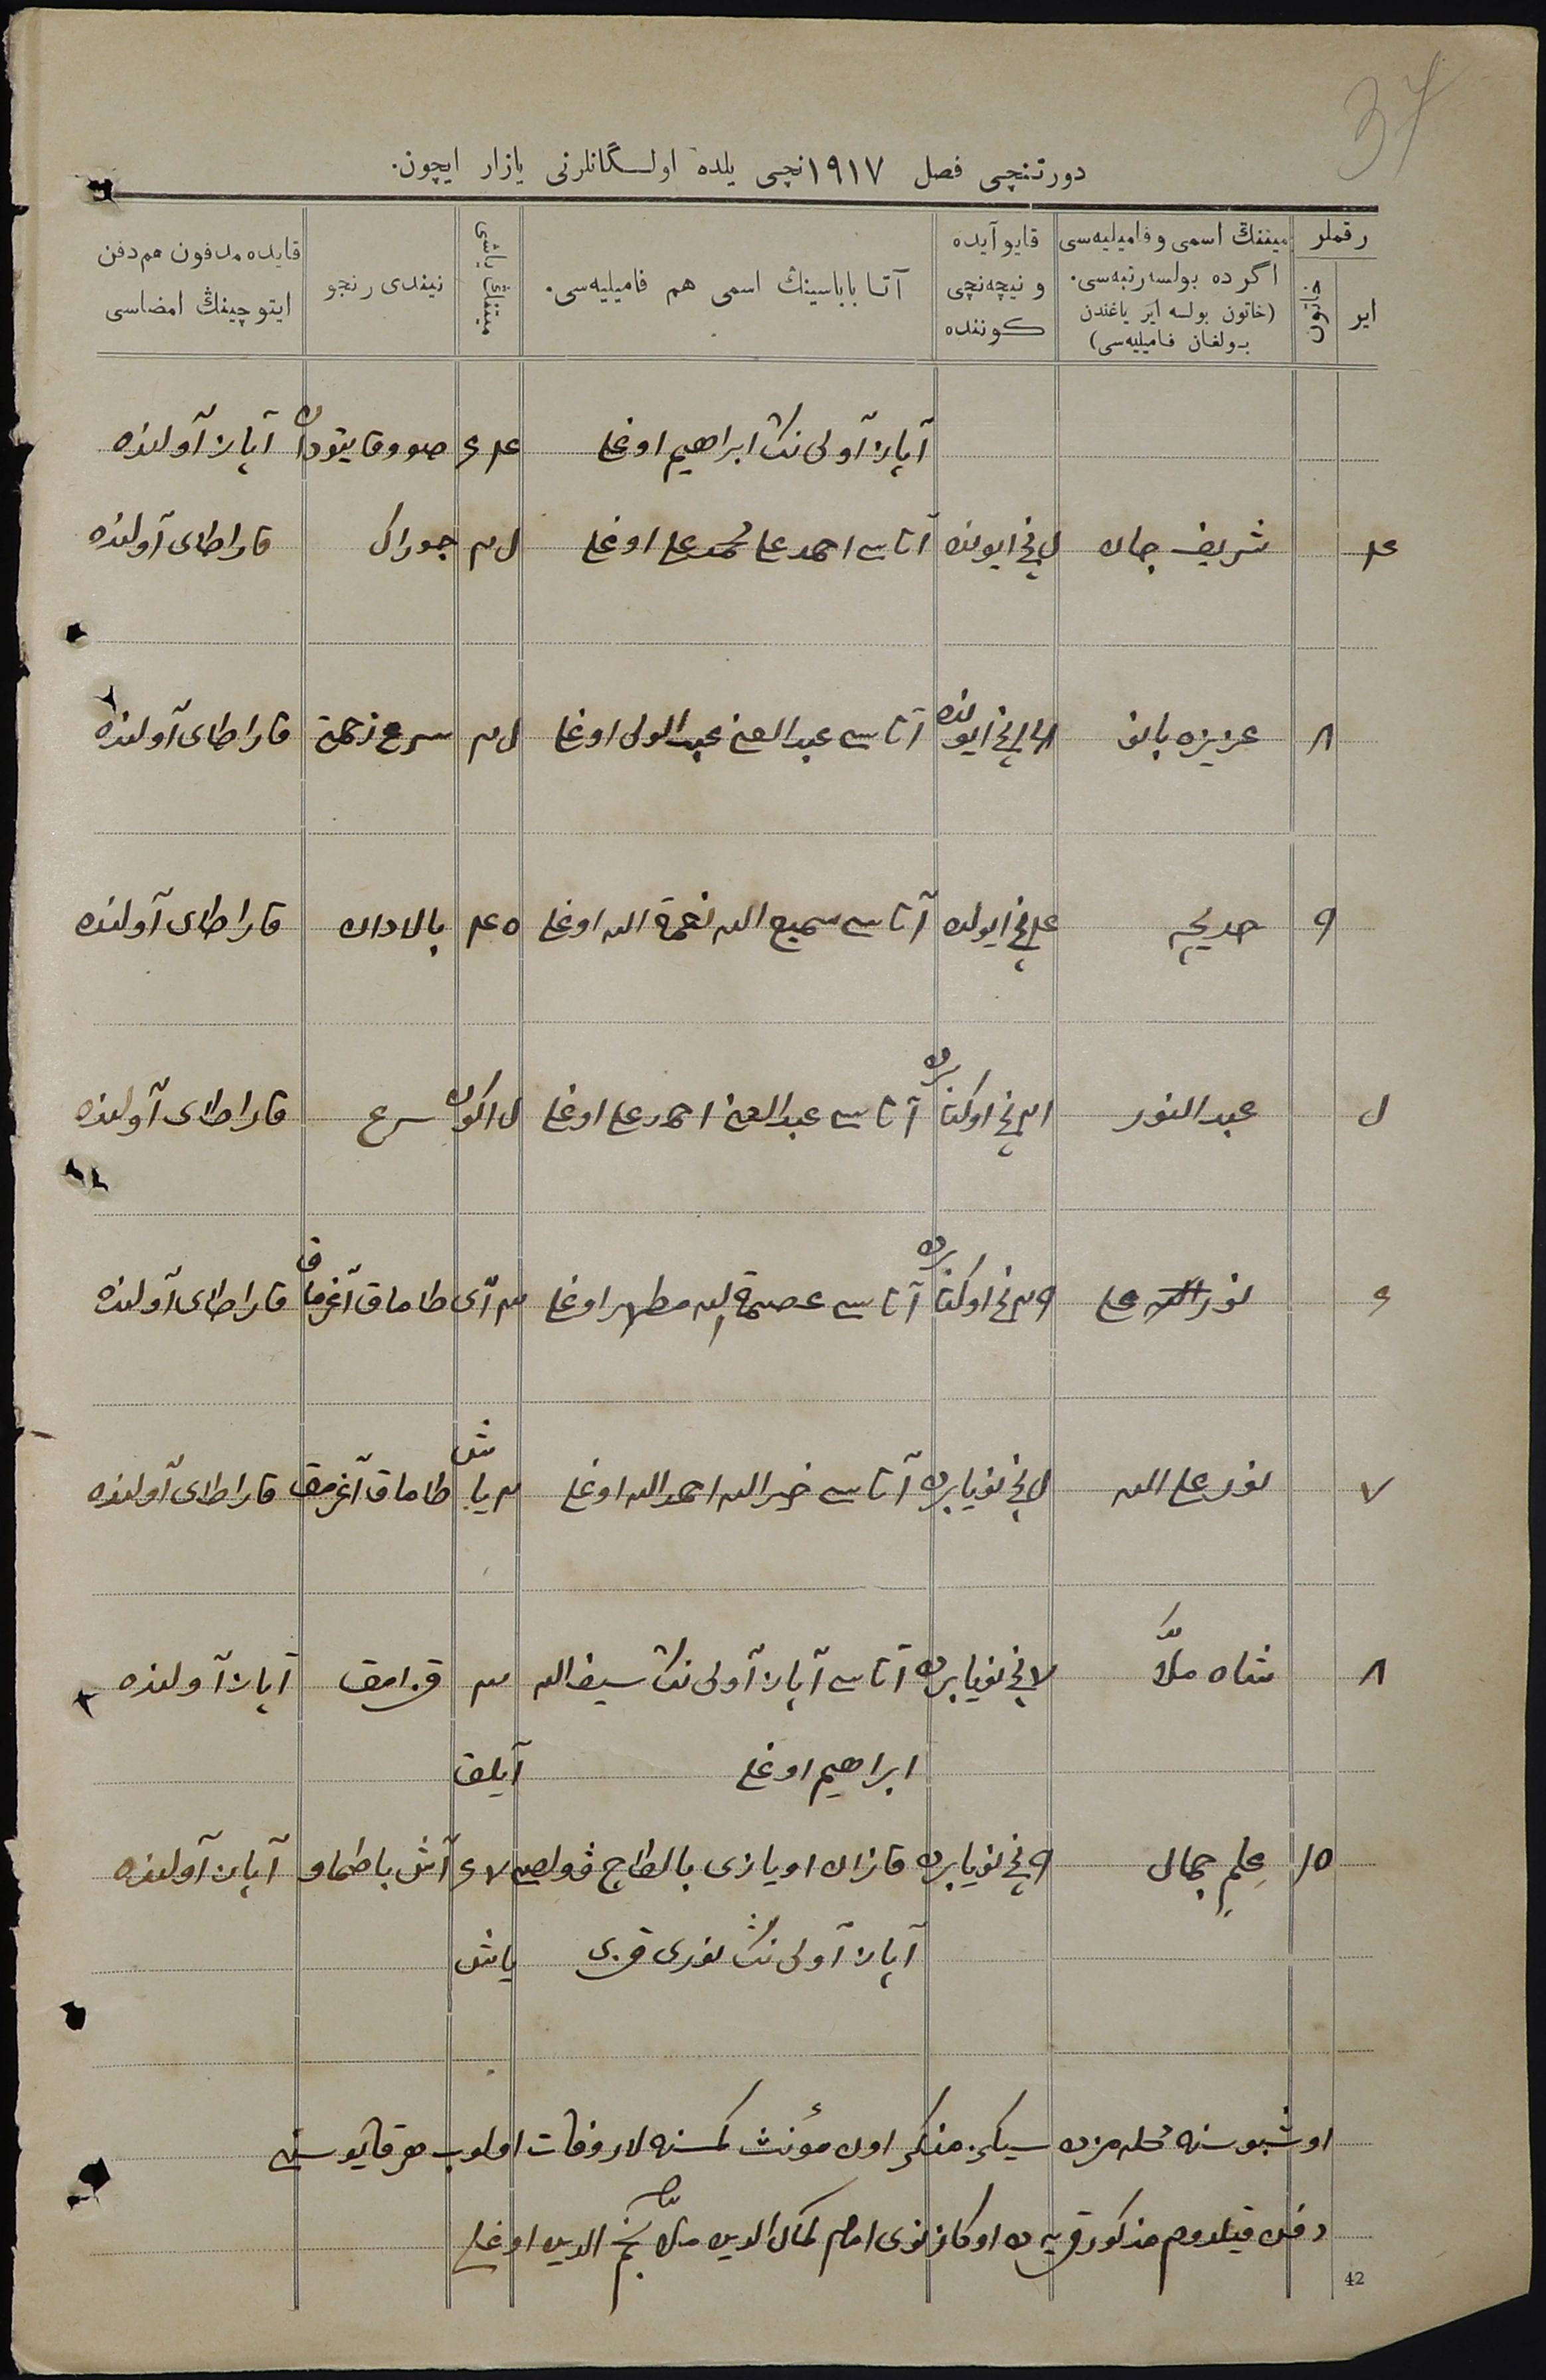 37
دورتنچی فصل ١٩١٧نچی یلده اولسگانلرنی یازار ایچون.
رقملر
ایر
خاتون
میتنڭ اسمی و فامیلیه‌سی
اگر ده بولسه رتبه‌سی.
(خاتون بولسه ایر یاغندن
بولغان فامیلیه‌سی)
قایو آیده
و نیچه‌نچی
کوننده
آتا باباسینڭ اسمی هم فامیلیه‌سی.
میتنڭ یاشی
نیندی رنجو
قایده مدفون هم دفن
ایتوچینڭ امضاسی
آپاز آولی نڭ ابراهیم اوغلی صووقایتودان آپاز آولنده
شریف جان نچی ایونده آتاسی احمدعلی محمدعلی اوغلی جوراک قاراطای آولنده
٨ عزیزه بانو نچی ایونده آتاسی عبدالغنی عبدالولی اوغلی سرع زحمة قاراطای آولنده
٩ خدیجه نچی ایولده آتاسی سمیع الله نعمة الله اوغلی بالادان قاراطای آولنده
عبدالنور نچی اوکتابرده آتاسی عبدالغنی احمدعلی اوغلی کون سرع قاراطای آولنده
نور علی نچی اوکتابرده آتاسی عصمة الله مطهر اوغلی آی طاماق آغرماق قاراطای آولنده
٧ نورعلی الله نچی نویابرده آتاسی خیرالله احمدالله اوغلی یاش طاماق آغرمق قاراطای آولنده
٨ شاه ملّا نچی نویابرده آتاسی آپاز آولی نڭ سیف الله قزامق آپاز آولنده
ابراهیم اوغلی آیلق
١٠ علم جمال ٩ نچی نویابرده قازان اویازی بالطاچ ڤولصی آش باطماو آپاز آولنده
آپاز آولی نڭ نوری قزی یاش
اوشبو سنه محله‌مزده سیکز مذکر اون مؤنث کمسنه‌لار وفات اولوب هر قایوسینی
دفن قیلدوم مذکور قریه ده اوکازنوی امام کمال الدین ملّا نجم الدین اوغلی
42